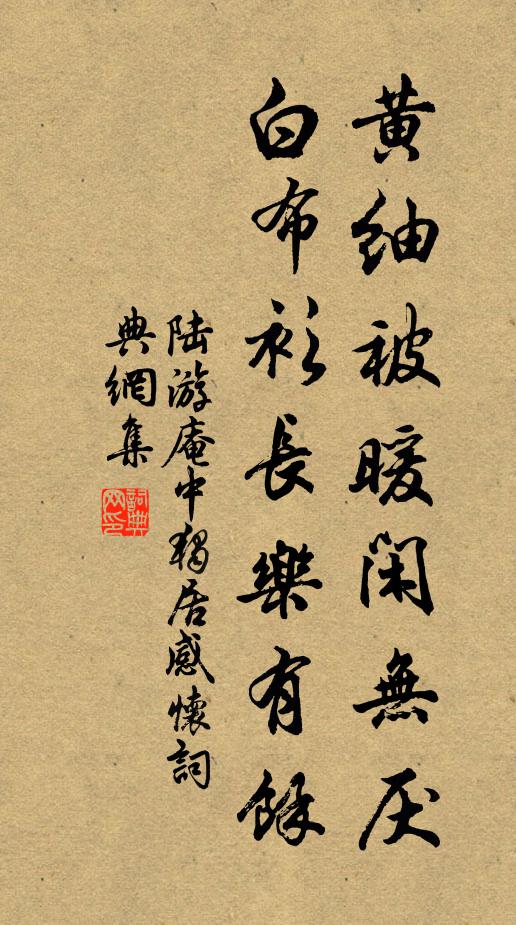 黄紬被暖閑無厌
白布衫長樂有餘
陆游庵中獨居感懷詞
典網集
詞典网印